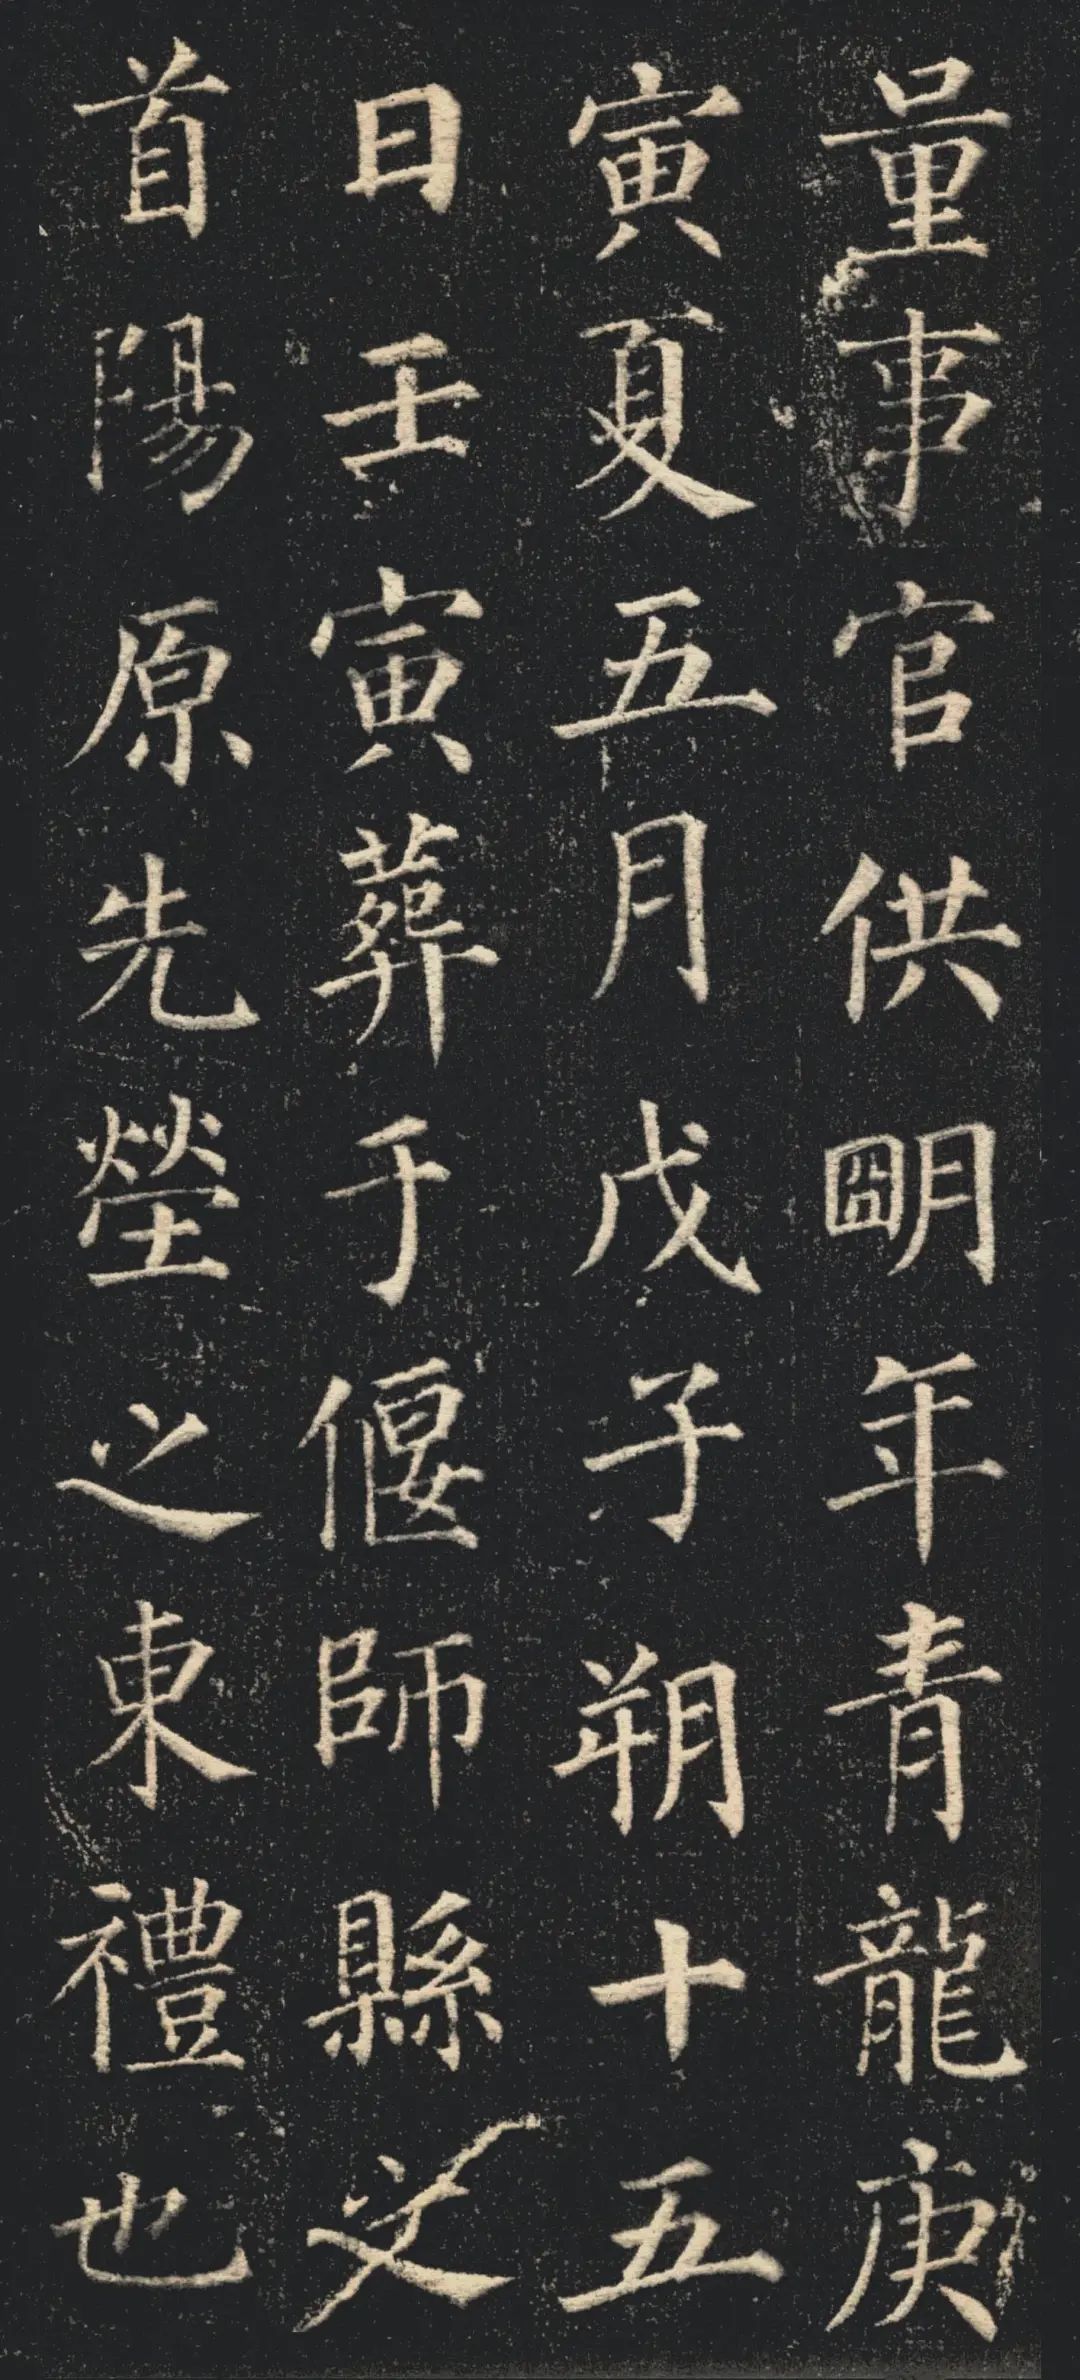 量事官供朙年青龍庚
寅夏五月戊子朔十五
日壬寅葬于偃師縣之
首陽原先塋之東禮也